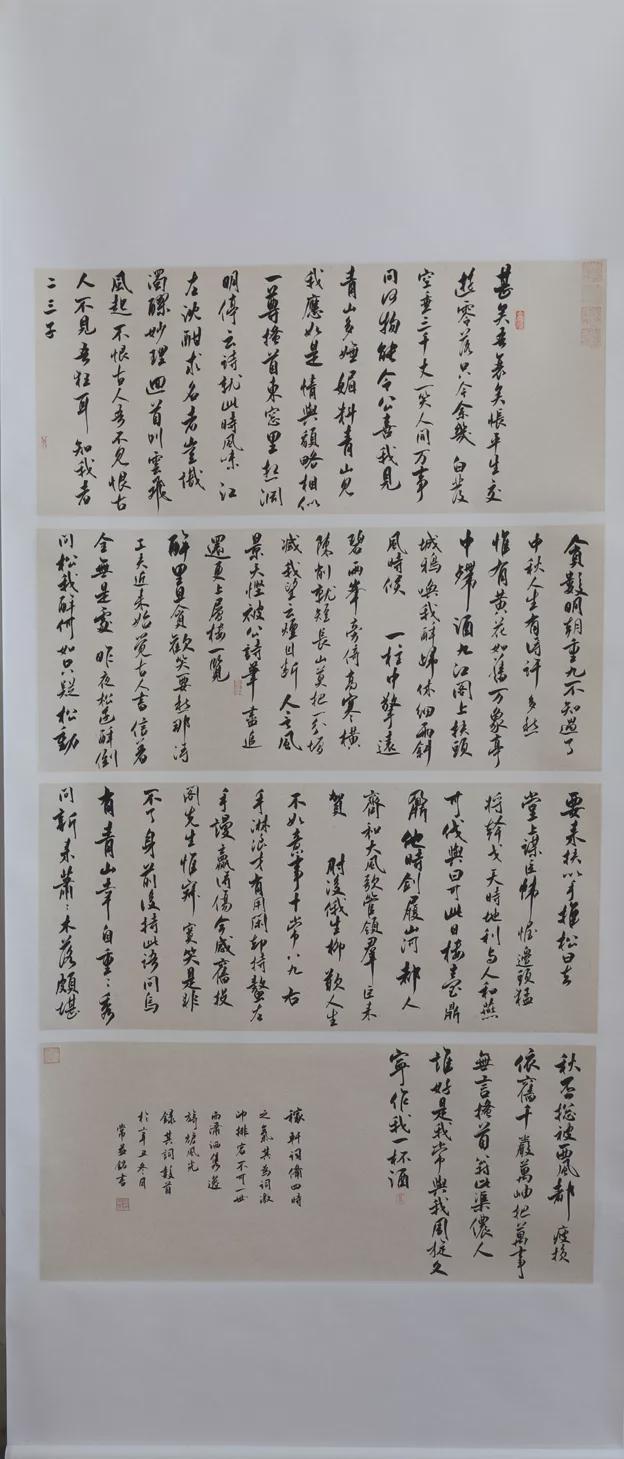 甚矣吾衰矣怅平生交
游零落只今余几 白发
空垂三千丈一笑人间万事
问何物能令公喜我见
青山多妩媚料青山见
我应如是情與額略相似
一尊搔首東窗里想渊
明停云诗就此时風味 江
左沈酣求名者豈識
濁醪妙理回首叫雲飛
風起 不恨古人吾不見恨古
人不見吾狂耳 知我者
二三子
貪數明朝重九不知過了
中秋人生有得许多愁
惟有黃花如舊 万象亭
中殢酒九江阁上扶頭
城鴉喚我醉歸休细雨斜
風時候 一柱中擎遠
碧兩峯旁倚高寒橫
陳削就短長山莫把一分增
减我望云煙目斷 人言風
景天慳被公詩筆盡追
還更上層樓一覽
醉里且貪歡笑要愁那得
工夫近来始觉古人書信着
全無是處 昨夜松邊醉倒
问松我醉何如只疑松動
要来扶以手推松曰去
堂上謀臣帷幄邊頭猛
将幹戈天時地利与人和燕
可伐與曰可此日樓臺鼎
鼐他時劍履山河都人
齊和大風歌管領羣臣来
賀 肘後俄生柳歎人生
不如意事十常八九右
手淋浪才有用閑却持螯左
手謾贏得傷今感舊投
阁先生惟寂寞笑是非
不了身前後持此语問烏
有青山幸自重重秀
问新来蕭蕭木落頗堪
秋否総被西風都瘦損
依舊千巖萬岫把萬事
無言搔首翁比渠儂人
誰好是我常與我周旋久
寧作我一杯酒
稼軒词儁四时
之氣其为词激
卬排宕不可一世
而潇洒隽逸
旖旎風光
録其詞数首
於辛丑冬月
常益銘書